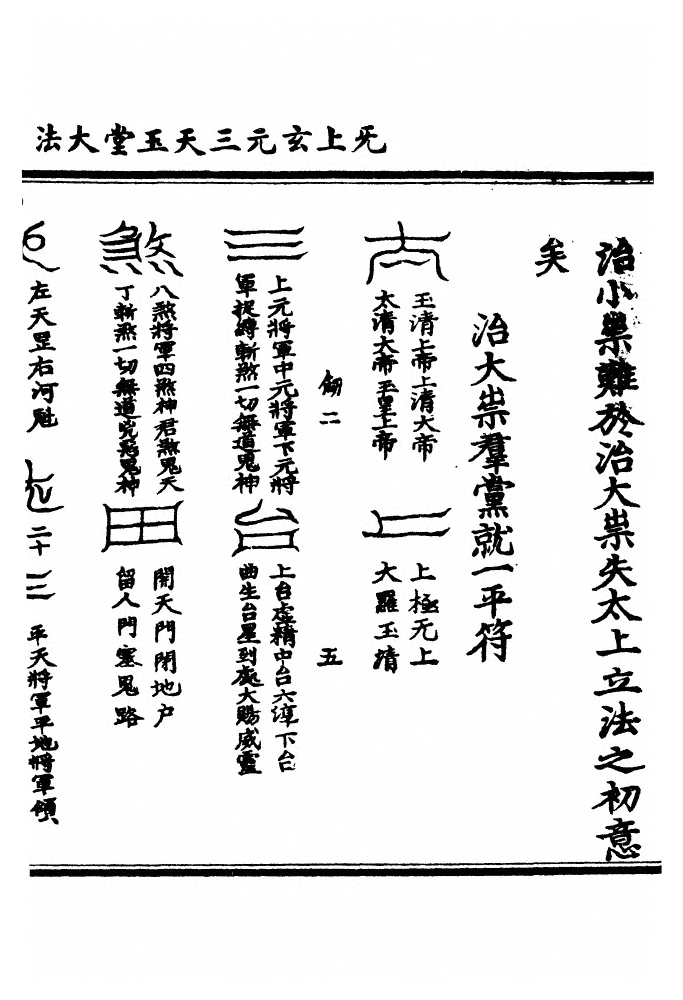 无上玄元三天玉堂大法
治小祟難於治大祟失太上立法之初意
矣
治大祟羣黨就一平符
玉清上帝上清大帝
太清大帝玉皇上帝
上極无上
大羅玉清
匑二
五
三
上元將軍中元將軍下元將
軍捉縛斬煞一切無道鬼神
台
上台虛精中台六淳下台
曲生台星到處大賜威靈
煞
八煞將軍四煞神君煞鬼天
丁斬煞一切無道兇惡鬼神
田
開天門閉地户
留人門塞鬼路
左天罡右河魁
二十
三
平天將軍平地將軍傾